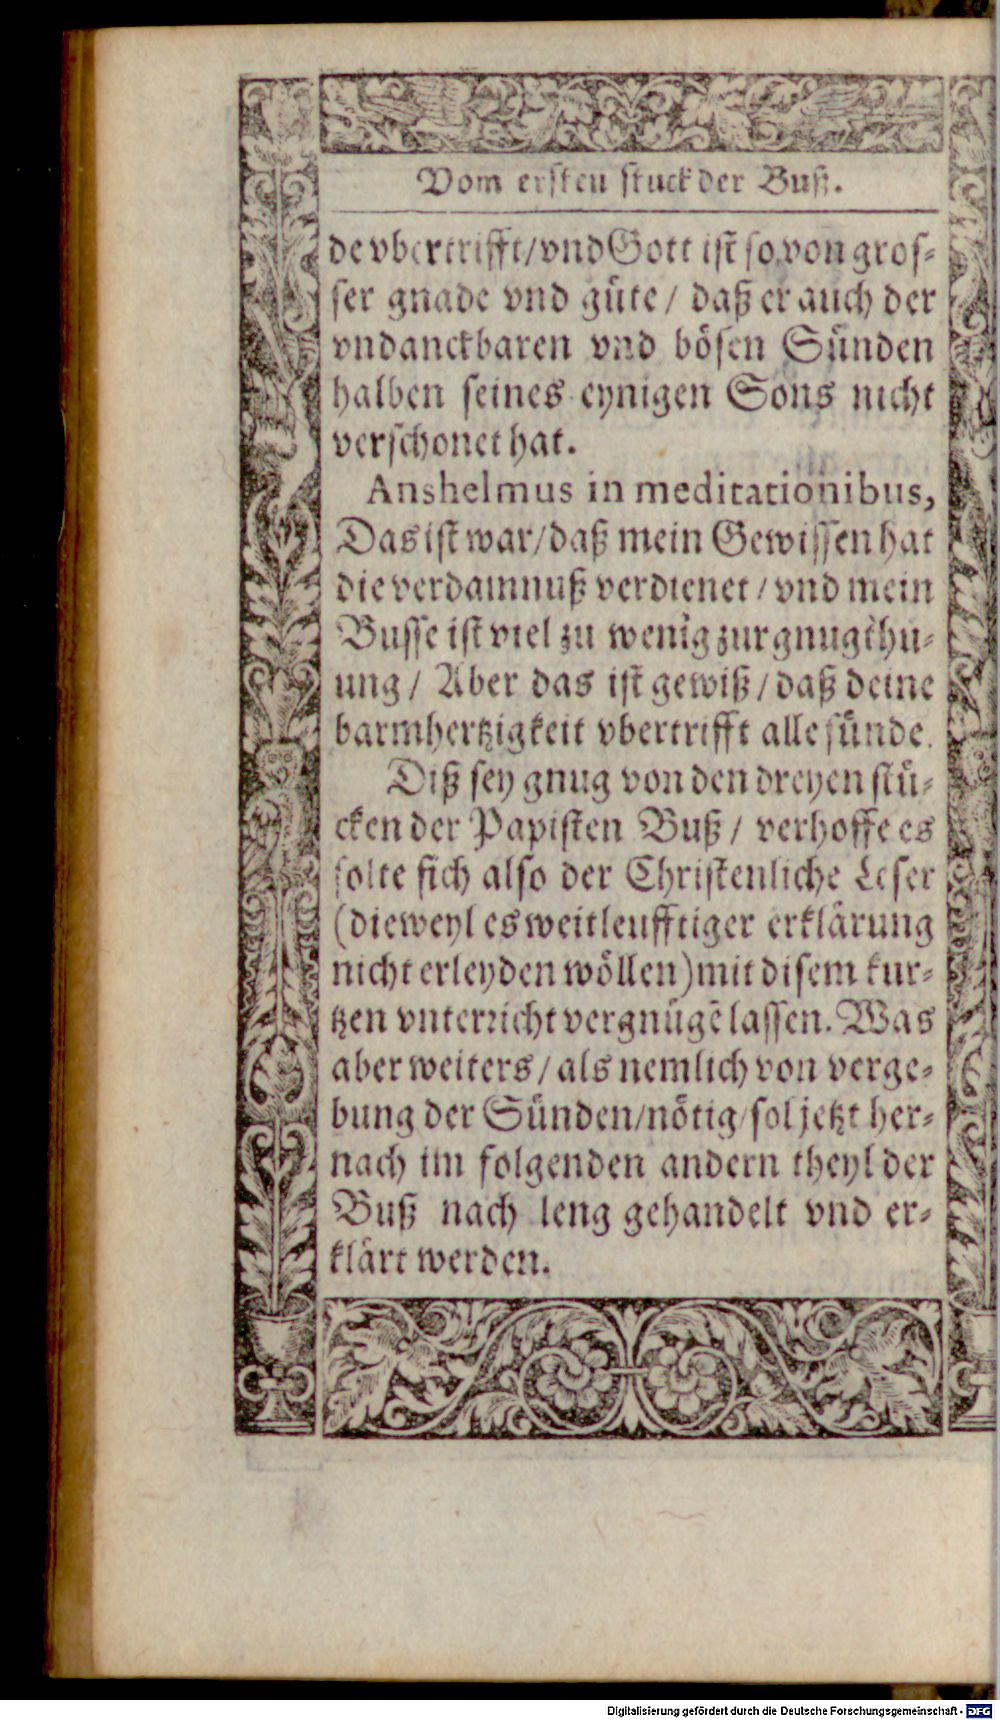 Vom ersten stuck der Buß.
de vbertrifft/vnd Gott ist so von gros-
ser gnade vnd güte/ daß er auch der
vndanckbaren vnd bösen Sünden
halben seines eynigen Sons nicht
verschonet hat.
Anshelmus in meditationibus,
Das ist war/daß mein Gewissen hat
die verdamnuß verdienet/vnd mein
Busse ist viel zu wenig zur gnugthu-
ung/ Aber das ist gewiß/daß deine
barmhertzigkeit vbertrifft alle sünde.
Diß sey gnug von den dreyen stü-
cken der Papisten Buß/ verhoffe es
solte sich also der Christenliche Leser
(dieweyl es weitleufftiger erklärung
nicht erleyden wöllen)mit disem kur-
tzen vnterricht vergnügẽ lassen. Was
aber weiters/als nemlich von verge-
bung der Sünden/nötig/sol jetzt her-
nach im folgenden andern theyl der
Buß nach leng gehandelt vnd er-
klärt werden.
Digitalisierung gefördert durch die Deutsche Forschungsgemeinschaft - DFG